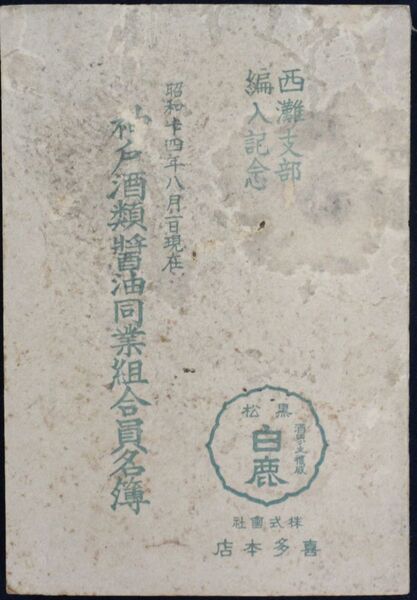 西灘支部
編入記念
昭和十四年八月一日現在
神戸酒類醤油同業組合員名簿
松黒
白鹿
社會式株
店本多喜